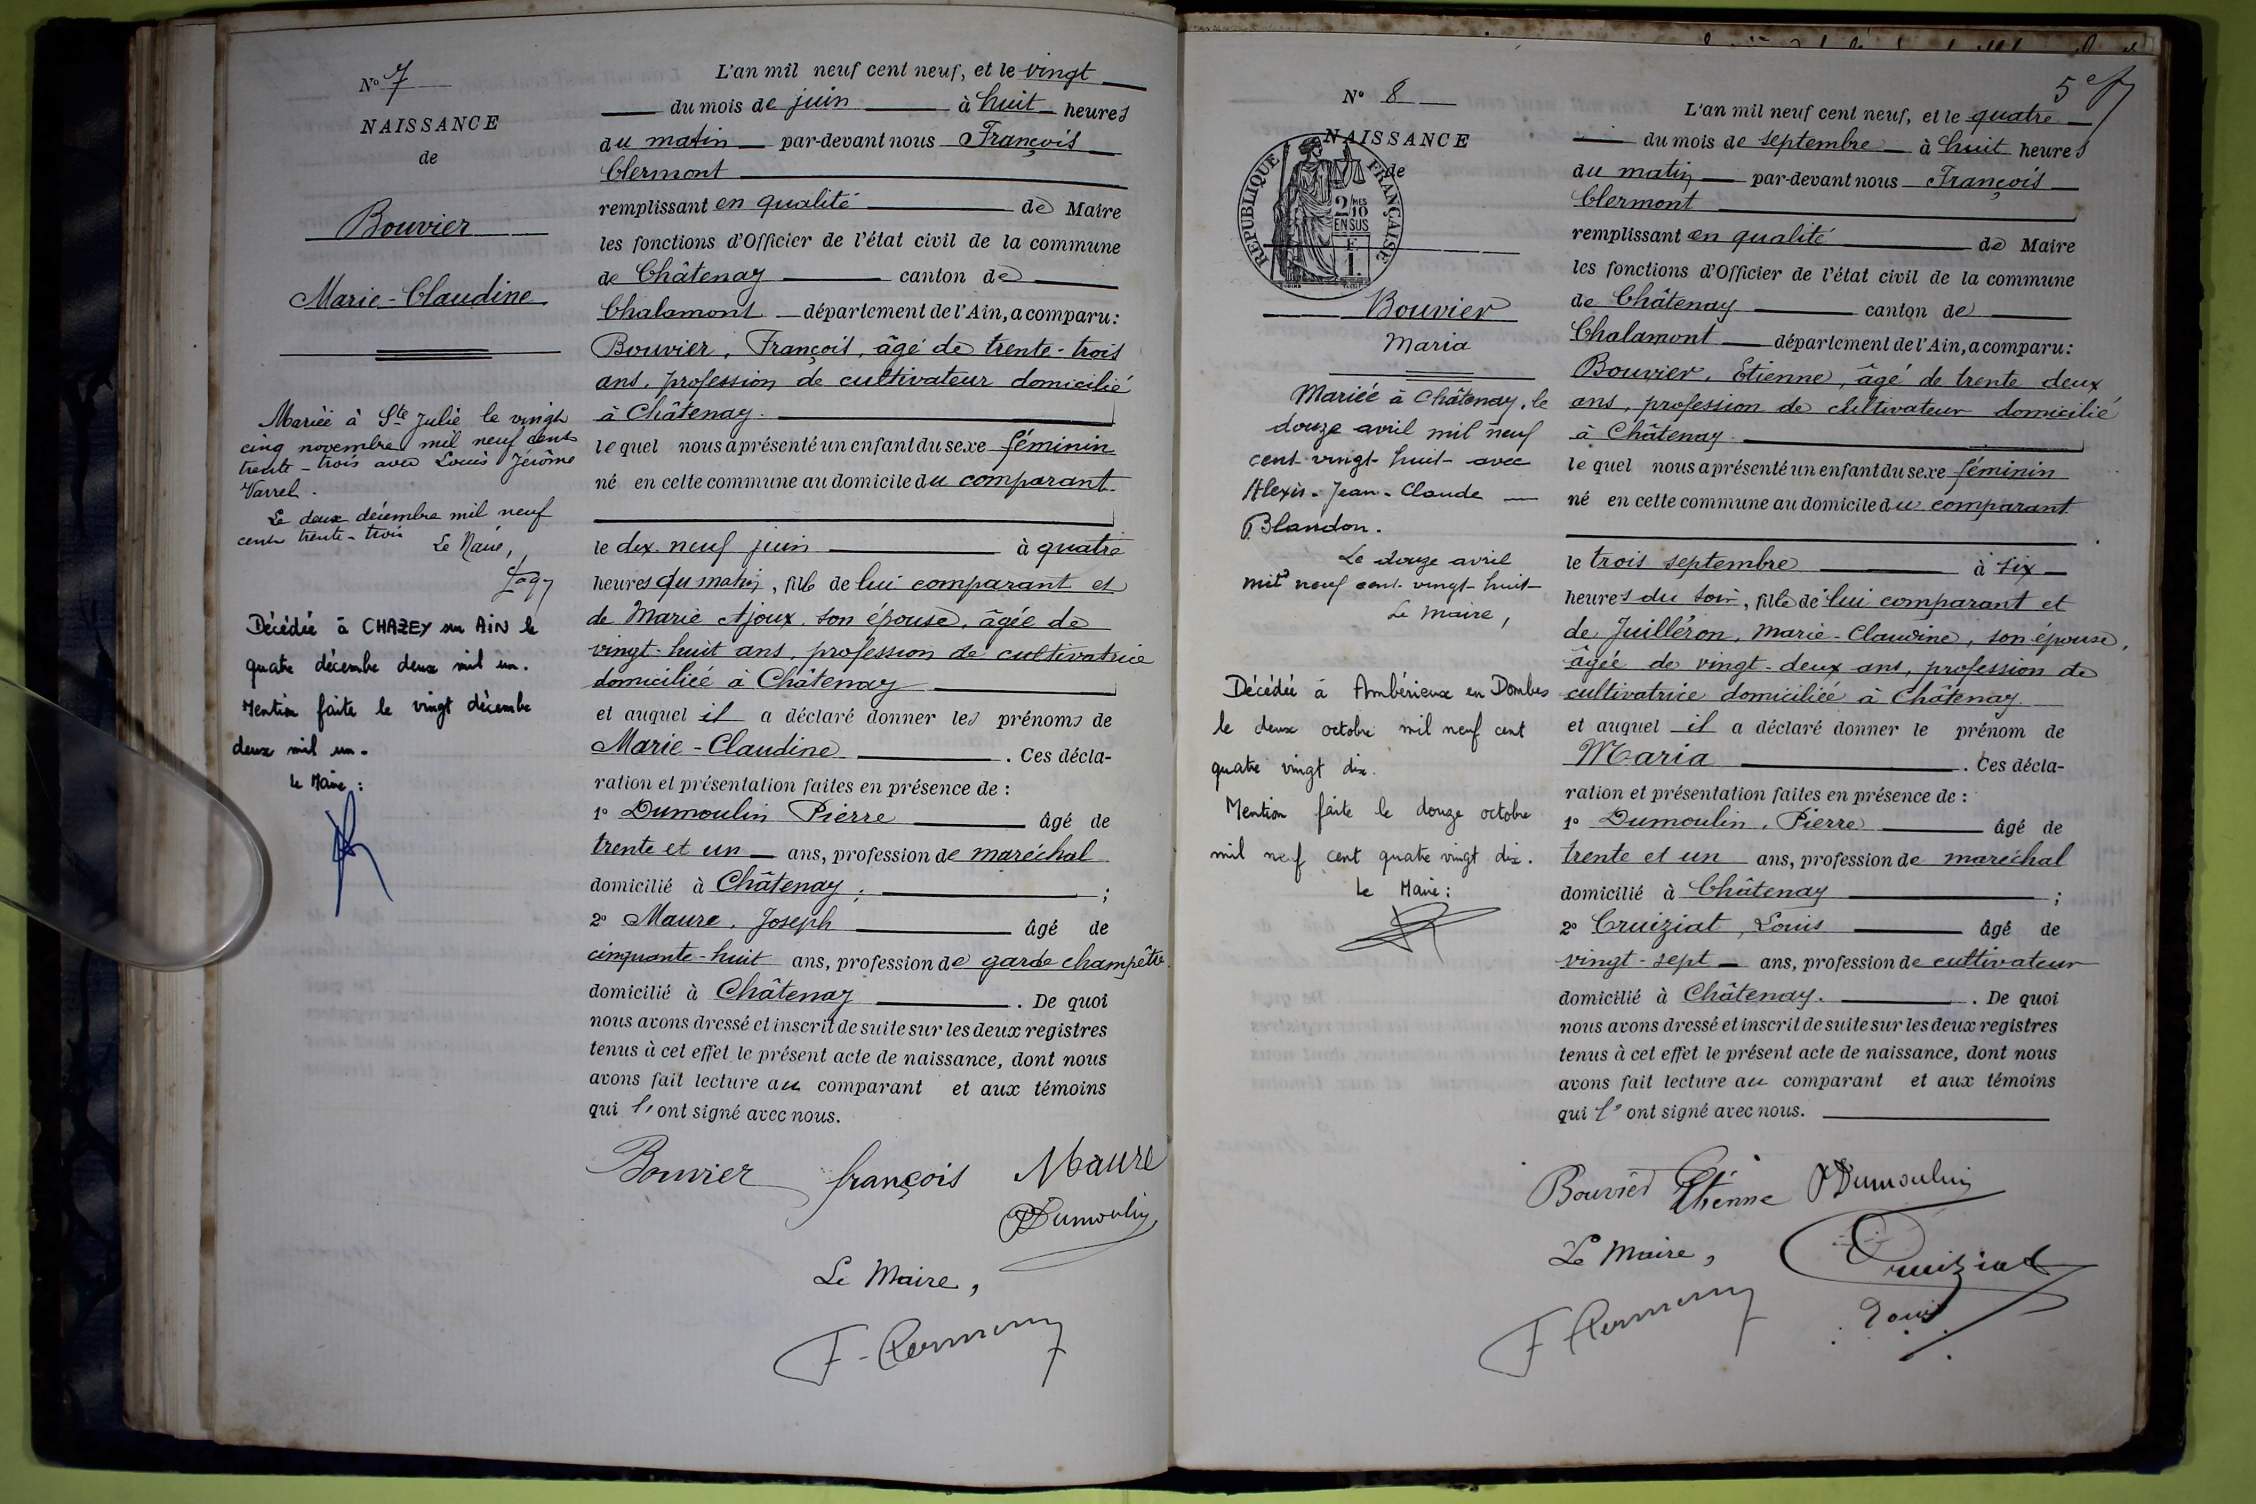 N° 7
NAISSANCE
de
Bouvier
Marie-Claudine
Mariée à Ste Julie le vingt
cinq novembre mil neuf cent
trente-trois avec Louis Jérôme
Varrel.
Le deux décembre mil neuf
cent trente-trois
Le Maire,
Décédée à CHAZEY sur AiN le
quatre décembre deux mil un.
Mention faite le vingt décembre
deux mil un.
Le Maire :
L'an mil neuf cent neuf, et le vingt
du mois de juin à huit heures
du matin par-devant nous François
Clermont
remplissant en qualité de Maire
les fonctions d'Officier de l'état civil de la commune
de Châtenay canton de
Chalamont département de l'Ain, a comparu :
Bouvier, François, âgé de trente-trois
ans, profession de cultivateur domicilié
à Châtenay.
lequel nous a présenté un enfant du sexe féminin
né en cette commune au domicile du comparant
le dix neuf juin à quatre
heures du matin, fille de lui comparant et
de Marie Ajoux, son épouse, âgée de
vingt-huit ans, profession de cultivatrice
domiciliée à Châtenay
et auquel il a déclaré donner les prénoms de
Marie-Claudine. Ces décla-
ration et présentation faites en présence de :
1° Dumoulin Pierre âgé de
trente et un ans, profession de maréchal
domicilié à Châtenay ;
2° Maure, Joseph âgé de
cinquante-huit ans, profession de garde champêtre
domicilié à Châtenay. De quoi
nous avons dressé et inscrit de suite sur les deux registres
tenus à cet effet le présent acte de naissance, dont nous
avons fait lecture au comparant et aux témoins
qui l'ont signé avec nous.
Bouvier françois Maure
PDumoulin
Le Maire,
F. Clermont
5e f
N° 8
NAISSANCE
de
REPUBLIQUE FRANÇAISE
2/10MES
EN SUS
F.
1.
Bouvier
Maria
Mariée à Châtenay, le
douze avril mil neuf
cent vingt-huit avec
Alexis-Jean-Claude
Blandon.
Le douze avril
mil neuf cent-vingt-huit
Le Maire,
Décédée à Ambérieux en Dombes
le deux octobre mil neuf cent
quatre vingt dix.
Mention faite le douze octobre
mil neuf cent quatre vingt dix.
Le Maire :
L'an mil neuf cent neuf, et le quatre
du mois de septembre à huit heures
du matin par-devant nous François
Clermont
remplissant en qualité de Maire
les fonctions d'Officier de l'état civil de la commune
de Châtenay canton de
Chalamont département de l'Ain, a comparu :
Bouvier, Etienne, âgé de trente deux
ans, profession de cultivateur domicilié
à Châtenay
lequel nous a présenté un enfant du sexe féminin
né en cette commune au domicile du comparant
le trois septembre à six
heures du soir, fille de lui comparant et
de Juilléron, Marie-Claudine, son épouse,
âgée de vingt-deux ans, profession de
cultivatrice domiciliée à Châtenay.
et auquel il a déclaré donner le prénom de
Maria. Ces décla-
ration et présentation faites en présence de :
1° Dumoulin, Pierre âgé de
trente et un ans, profession de maréchal
domicilié à Châtenay ;
2° Cruiziat, Louis âgé de
vingt-sept ans, profession de cultivateur
domicilié à Châtenay. De quoi
nous avons dressé et inscrit de suite sur les deux registres
tenus à cet effet le présent acte de naissance, dont nous
avons fait lecture au comparant et aux témoins
qui l'ont signé avec nous.
Bouvier Etienne PDumoulin
Le Maire,
Cruiziat
Louis
F Clermont